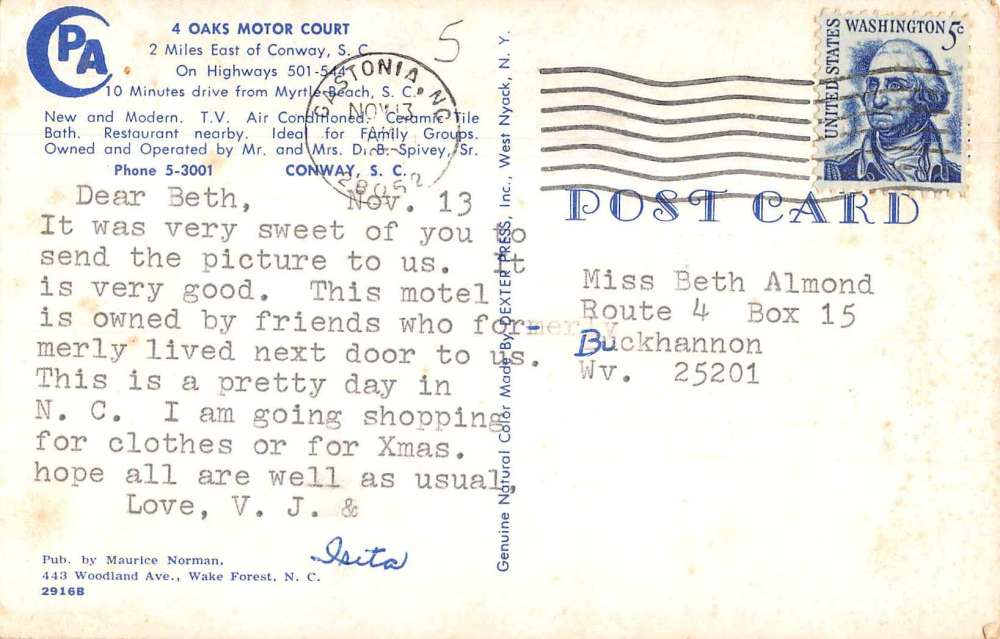 CPA
4 OAKS MOTOR COURT
2 Miles East of Conway, S. C.
On Highways 501-544
10 Minutes drive from Myrtle Beach, S. C.
New and Modern. T.V. Air Conditioned. Ceramic Tile
Bath. Restaurant nearby. Ideal for Family Groups.
Owned and Operated by Mr. and Mrs. D. B. Spivey, Sr.
Phone 5-3001 CONWAY, S. C.
5
GASTONIA, NC
NOV 13
AM
28052
UNITED STATES
WASHINGTON 5c
POST CARD
Dear Beth, Nov. 13
It was very sweet of you to
send the picture to us. It
is very good. This motel
is owned by friends who for-merly
merly lived next door to us.
This is a pretty day in
N. C. I am going shopping
for clothes or for Xmas.
hope all are well as usual,
Love, V. J. &
Isita
Miss Beth Almond
Route 4 Box 15
Buckhannon
Wv. 25201
Genuine Natural Color Made By DEXTER PRESS, Inc., West Nyack, N. Y.
Pub. by Maurice Norman,
443 Woodland Ave., Wake Forest, N. C.
2916B